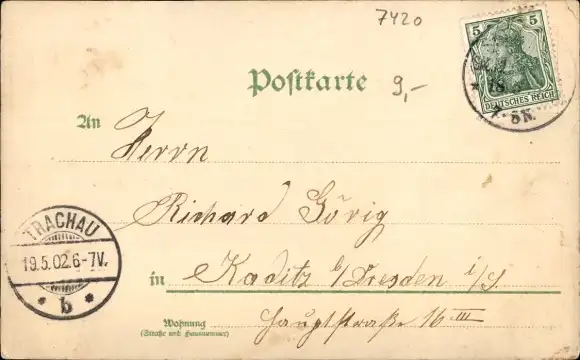 7420
5 5
DEUTSCHES REICH
18
7-8N.
Postkarte
9,-
An
Herrn
Richard Görig
TRACHAU
19.5.02.6-7V.
* b *
in Kaditz b/Dresden i/S.
Wohnung
(Straße und Hausnummer)
Hauptstraße 16 III